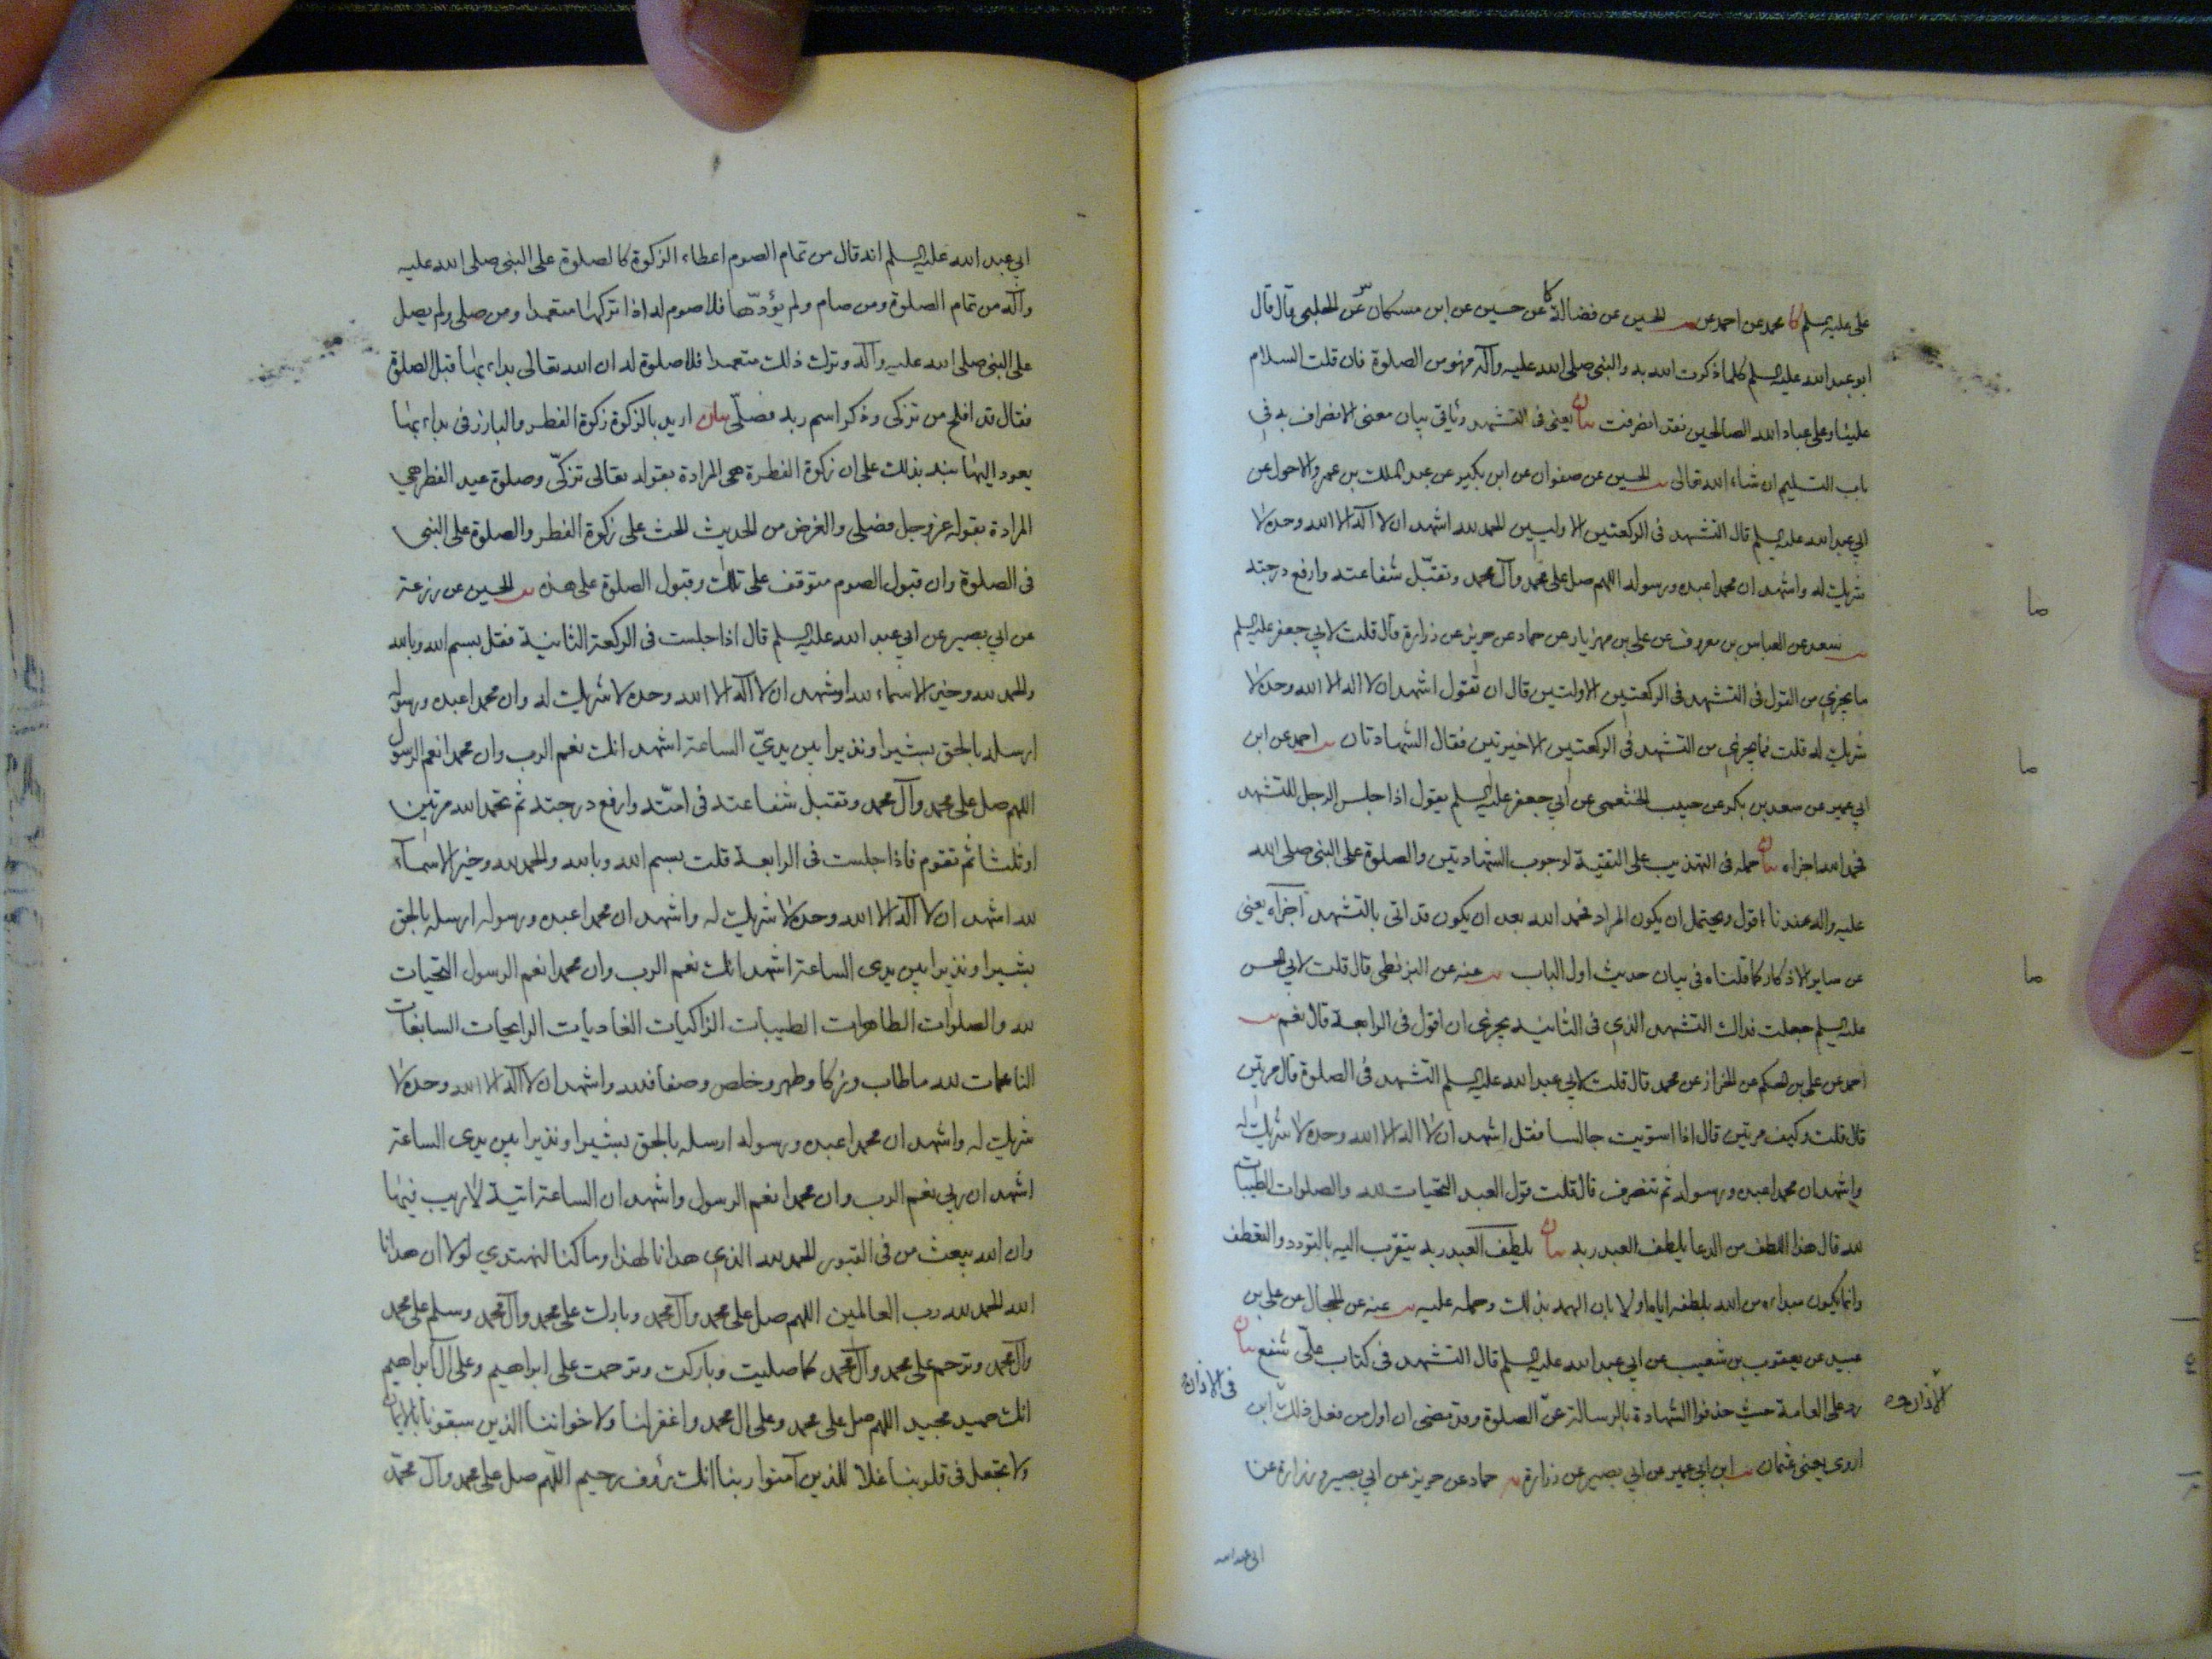 على عليه السلم كا محمد عن احمد عن الحسين عن فضالة عن حسين عن ابن مسكان عن الحلبى قال قال
ابو عبد الله عليه السلم كلما ذكرت الله به والنبى صلى الله عليه وآله فهو من الصلوة فان قلت السلام
علينا وعلى عباد الله الصالحين فقد انصرفت بيان يعنى فى التشهد وياتى بيان معنى الانصراف به فى
باب التسليم ان شاء الله تعالى يب الحسين عن صفوان عن ابن بكير عن عبد الملك بن عمرو الاحول عن
ابي عبد الله عليه السلم قال التشهد فى الركعتين الاوليين الحمد لله اشهد ان لا آله الا الله وحده لا
شريك له واشهد ان محمدا عبده ورسوله اللهم صل على محمد وآل محمد وتقبّل شفاعته وارفع درجته
يب سعد عن العباس بن معروف عن على بن مهزيار عن حماد عن حريز عن زرارة قال قلت لابي جعفر عليه السلم
ما يجزي من القول فى التشهد فى الركعتين الاولتين قال ان تقول اشهد ان لا اله الا الله وحده لا
شريك له قلت فما يجزي من التشهد فى الركعتين الاخيرتين فقال الشهادتان يب احمد عن ابن
ابي عمير عن سعد بن بكر عن حبيب الخثعمى عن ابي جعفر عليه السلم يقول اذا جلس الرجل للتشهد
فحمد الله اجزاه بيان حمله فى التهذيب على التقية لوجوب الشهادتين والصلوة على النبى صلى الله
عليه واله عندنا اقول ويحتمل ان يكون المراد فحمد الله بعد ان يكون قد اتى بالتشهد اجزاه يعنى
عن ساير الاذكار كما قلناه فى بيان حديث اول الباب يب عنه عن البزنطى قال قلت لابي الحسن
عليه السلم جعلت فداك التشهد الذي فى الثانية يجزي ان اقول فى الرابعة قال نعم يب
احمد عن على بن الحكم عن الخزاز عن محمد قال قلت لابي عبد الله عليه السلم التشهد فى الصلوة قال مرتين
قال قلت وكيف مرتين قال اذا استويت جالسا فقل اشهد ان لا اله الا الله وحده لا شريك له
واشهد ان محمدا عبده ورسوله ثم تنصرف قال قلت قول العبد التحيات لله والصلوات الطيبات
لله قال هذا اللطف من الدعا يلطف العبد ربه بيان يلطف العبد ربه يتقرب اليه بالتودد والتعطف
وانما يكون مبداه من الله بلطفه اياه اولا بان الهمه بذلك وحمله عليه يب عنه عن الحجال عن على بن
عبيد عن يعقوب بن شعيب عن ابي عبد الله عليه السلم قال التشهد فى كتاب علىّ شفع بيان
رد على العامة حيث حذفوا الشهادة بالرسالة عن الصلوة وقد مضى ان اول من فعل ذلك ابن
فى الاذان
اروى يعنى عثمان يب ابن ابي عمير عن ابي بصير عن زرارة يه حماد عن حريز عن ابي بصير وزرارة عن
ابى عبد الله
ابي عبد الله عليه السلم انه قال من تمام الصوم اعطاء الزكوة كالصلوة على النبى صلى الله عليه
وآله من تمام الصلوة ومن صام ولم يؤدّها فلا صوم له اذا تركها متعمدا ومن صلى ولم يصل
على النبى صلى الله عليه وآله وترك ذلك متعمدا فلا صلوة له ان الله تعالى بداء بها قبل الصلوة
فقال قد افلح من تزكى وذكر اسم ربه فصلّى بيان اريد بالزكوة زكوة الفطر والبارز فى بداء بها
يعود اليها نبه بذلك على ان زكوة الفطرة هى المرادة بقوله تعالى تزكّى وصلوة عيد الفطر هي
المرادة بقوله عز وجل فصلى والغرض من الحديث الحث على زكوة الفطر والصلوة على النبى
فى الصلوة وان قبول الصوم متوقف على تلك وقبول الصلوة على هذه يب الحسين عن زرعة
عن ابي بصير عن ابي عبد الله عليه السلم قال اذا جلست فى الركعة الثانية فقل بسم الله وبالله
والحمد لله وخير الاسماء لله اشهد ان لا آله الا الله وحده لا شريك له وان محمدا عبده ورسوله
ارسله بالحق بشيرا ونذيرا بين يديّ الساعة اشهد انك نعم الرب وان محمدا نعم الرسول
اللهم صل على محمد وآل محمد وتقبل شفاعته فى امّته وارفع درجته ثم تحمد الله مرتين
او ثلثا ثم تقوم فاذا جلست فى الرابعة قلت بسم الله وبالله والحمد لله وخير الاسمآء
لله اشهد ان لا آله الا الله وحده لا شريك له واشهد ان محمدا عبده ورسوله ارسله بالحق
بشيرا ونذيرا بين يدى الساعة اشهد انك نعم الرب وان محمدا نعم الرسول التحيات
لله والصلوات الطاهرات الطيبات الزاكيات الغاديات الرايحات السابغات
الناعمات لله ما طاب وزكا وطهر وخلص وصفا فلله واشهد ان لا آله الا الله وحده لا
شريك له واشهد ان محمدا عبده ورسوله ارسله بالحق بشيرا ونذيرا بين يدى الساعة
اشهد ان ربي نعم الرب وان محمدا نعم الرسول واشهد ان الساعة اتية لا ريب فيها
وان الله يبعث من فى القبور الحمد لله الذي هدانا لهذا وما كنا لنهتدي لولا ان هدانا
الله الحمد لله رب العالمين اللهم صل على محمد وآل محمد وبارك على محمد وآل محمد وسلم على محمد
وآل محمد وترحم على محمد وآل محمد كما صليت وباركت وترحمت على ابراهيم وعلى آل ابراهيم
انك حميد مجيد اللهم صل على محمد وعلى ال محمد واغفر لنا ولاخواننا الذين سبقونا بالايمان
ولا تجعل فى قلوبنا غلا للذين آمنوا ربنا انك رؤف رحيم اللهم صل على محمد وآل محمد